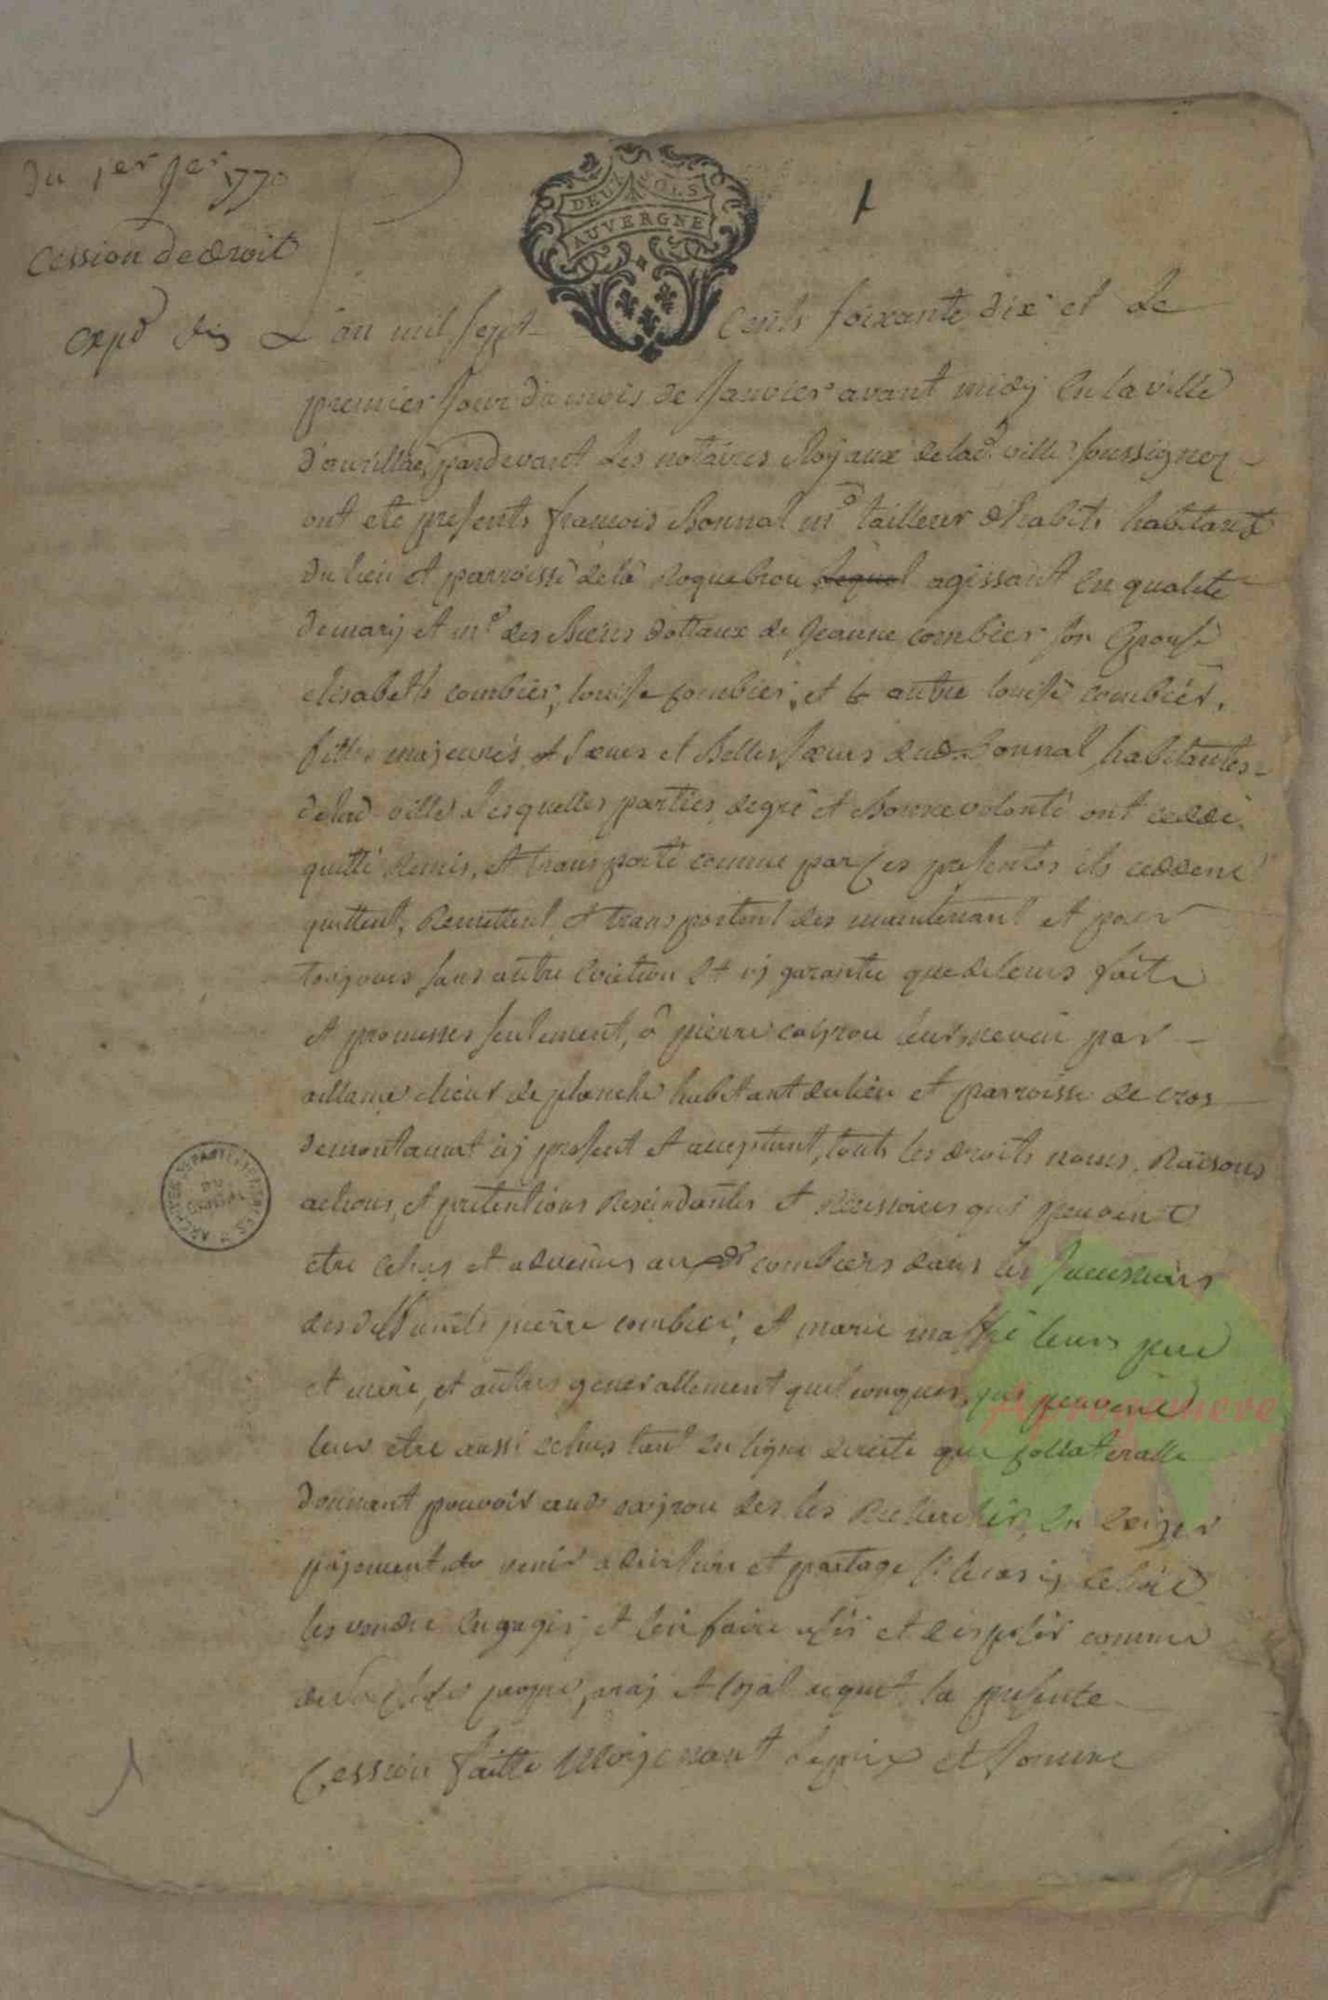 Du 1er Jer 1770
Cession de droit
expd
DEUX SOLS
AUVERGNE
1
L'an mil sept cents soixante dix et le
premier jour du mois de Janvier avant midy en la ville
d'aurillac pardevant les notaires Royaux de lad. ville soussignez
ont eté presents françois Bonnal me tailleur d'habits habitant
du lieu et parroisse de la Roquebrou lequel agissant en qualité
de mary et me des Biens dottaux de Jeanne combier son Epouse
elisabeth combier, louise combier, et autre louise combier,
filles majeures et sœurs et Belles sœurs dud. Bonnal habitantes
de lad. ville Lesquelles parties de gré et Bonne volonté ont ceddé
quitté Remis, et transporté comme par ces presentes ils ceddent
quittent, Remettent et transportent des maintenant et pour
toujours sans autre eviction et garantie que de leurs faits
et promesses seulement, à pierre cayrou leur neveu par
de planche habitant du lieu et parroisse de cros
de montamat icy present et acceptant, touts les droits noms, Raisons
actions, et pretentions Rescindantes et Rescisoires qui peuvent
etre echus et advenus aux combiers dans les successions
des deffunts pierre combier, et marie maffre leurs pere
et mere, et autres generallement quelconques, qui peuvent
leur etre aussi echus tant en ligne directe que collateralle
Donnant pouvoir aud cayrou des les Rechercher, en exiger
payement de venir a division et partage sy le cas y echoit
les vendre engager, et en faire user et disposer comme
de propre, vray et loyal acquet la presente
Cession faitte Moyenant le prix et somme
ARCHIVES DEPARTEMENTALES
DU
CANTAL
Aprogemere